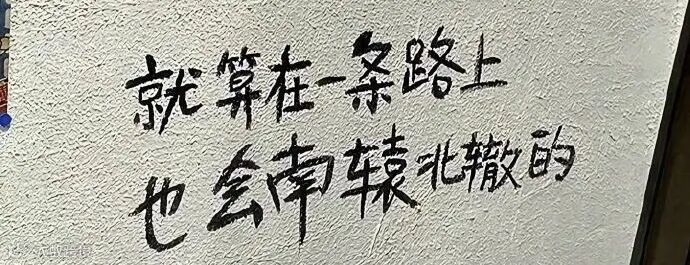 就算在一条路上
也会南辕北辙的